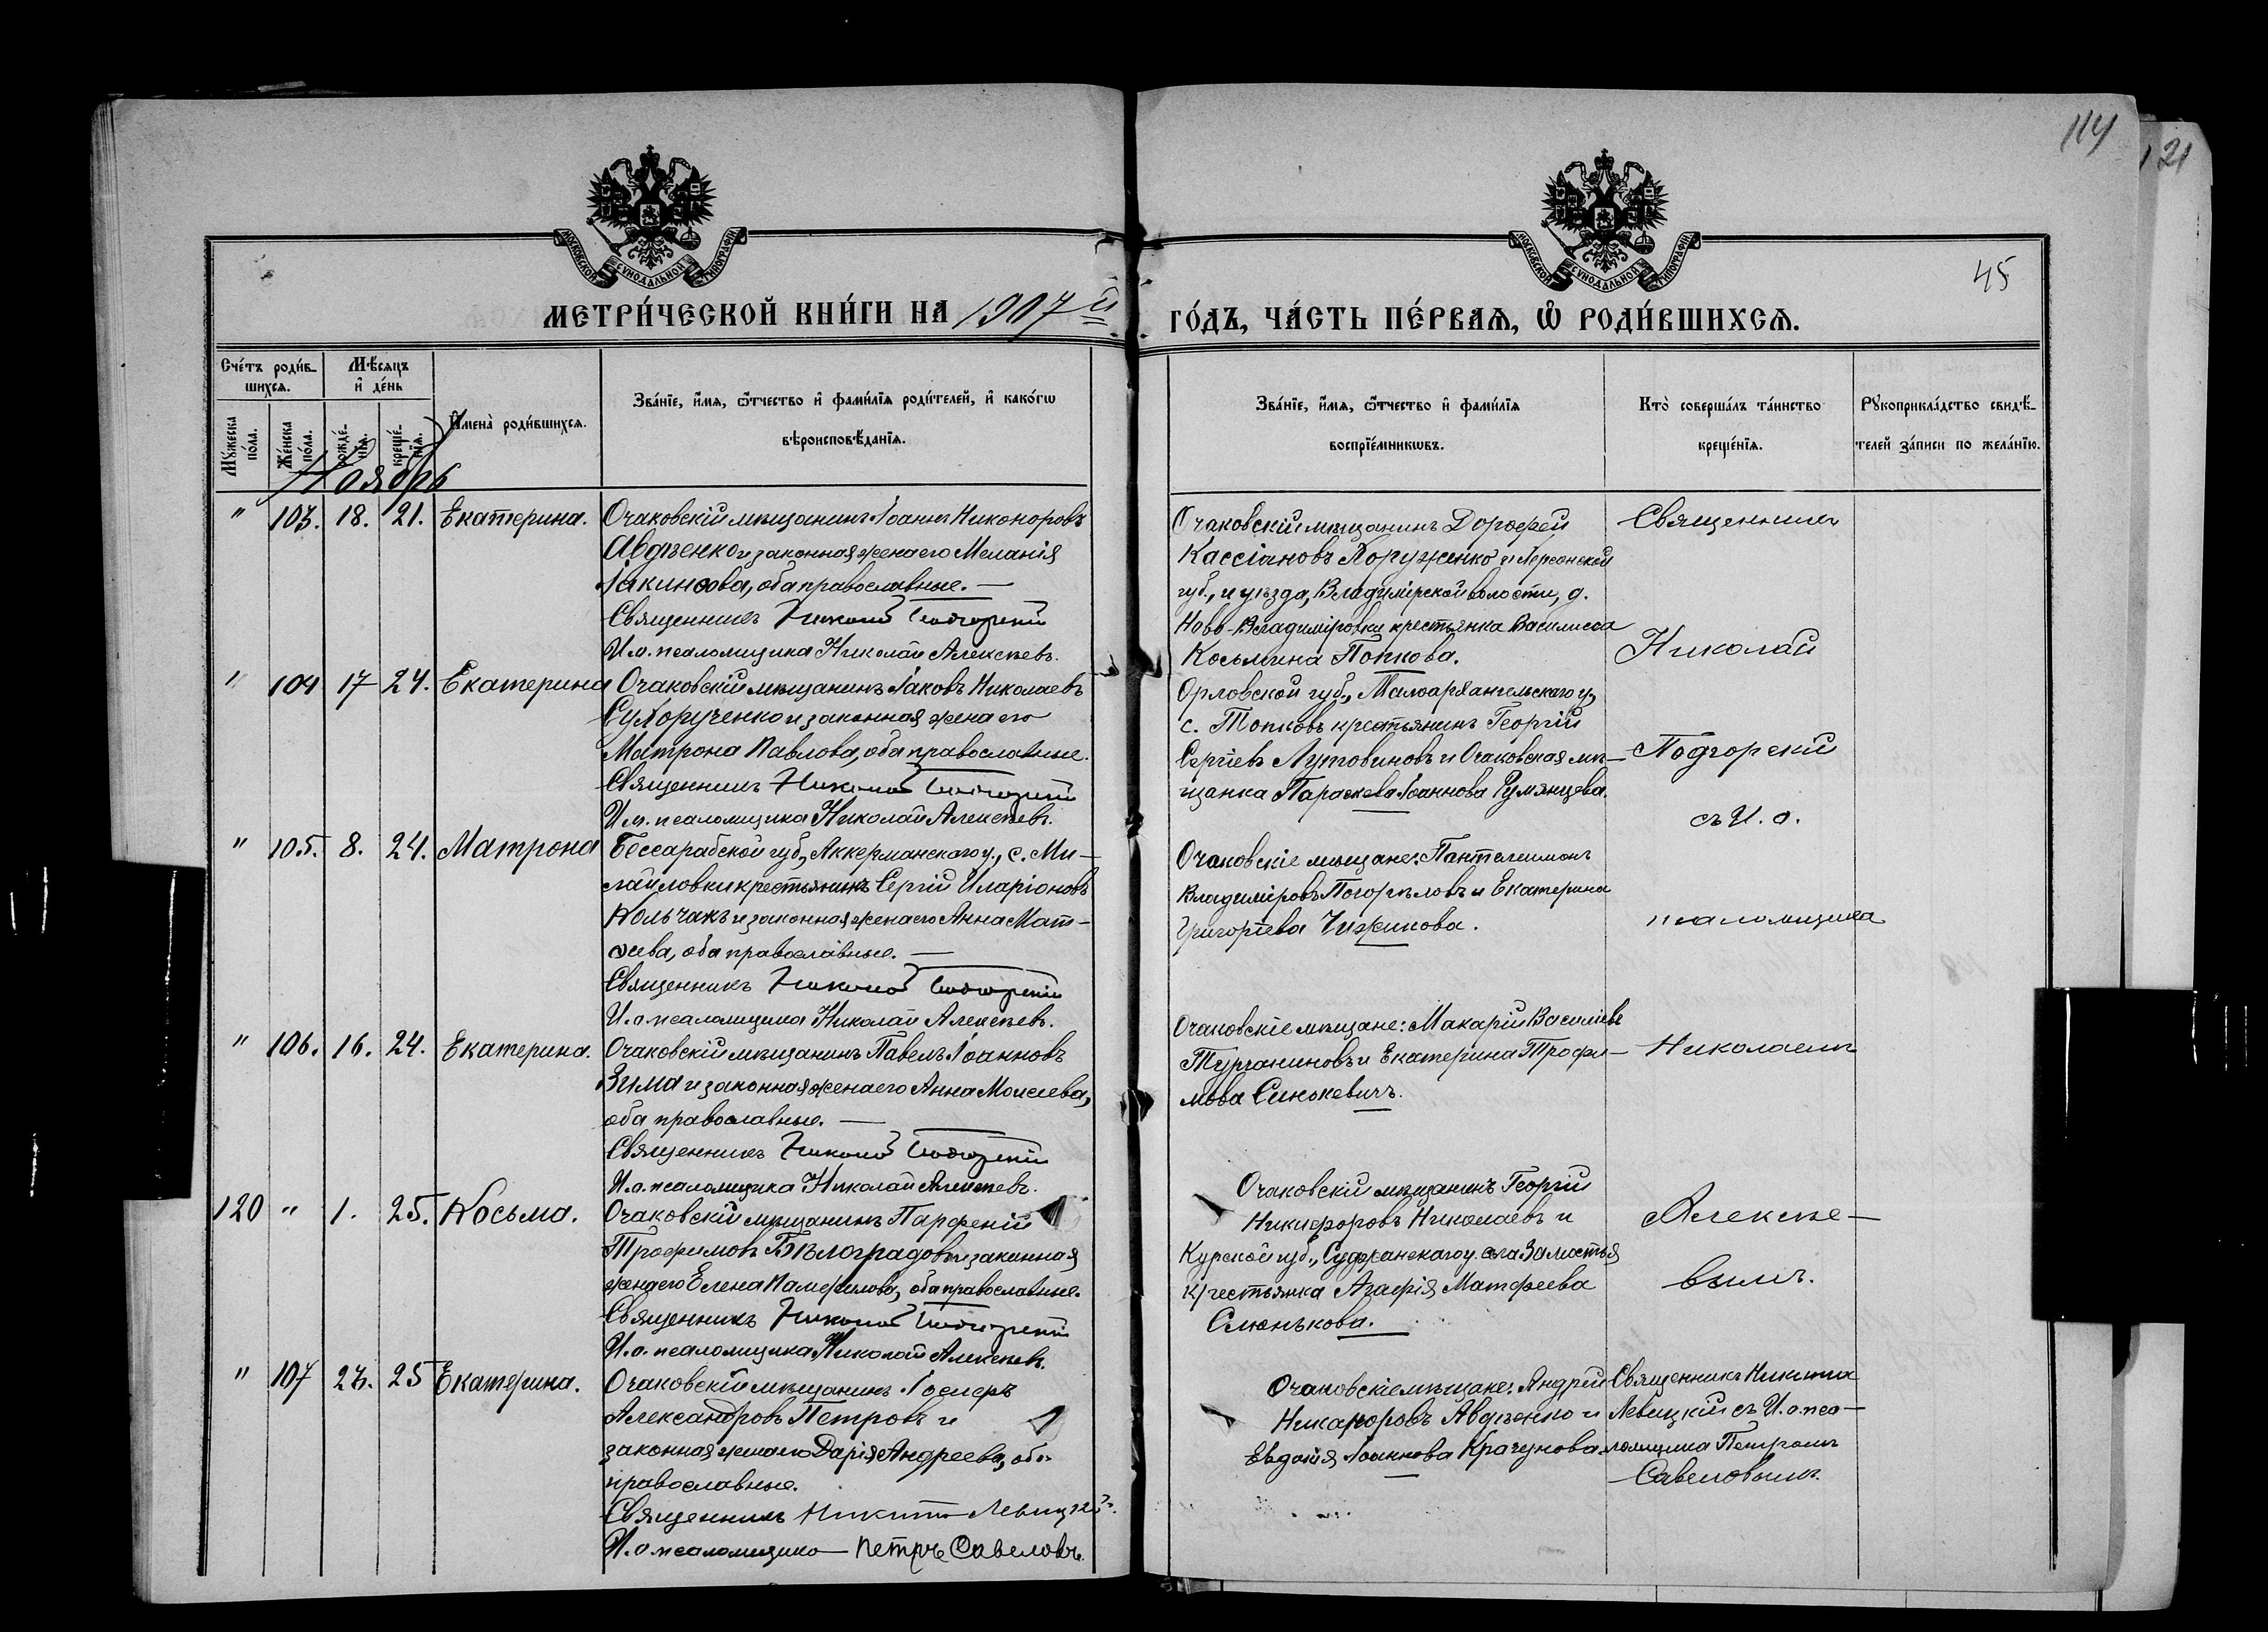 114
121
МОСКОВСКОЙ СѴНОДАЛЬНОЙ ТИПОГРАФІИ
МОСКОВСКОЙ СѴНОДАЛЬНОЙ ТИПОГРАФІИ
45
МЕТРИ́ЧЕСКОЙ КНИ́ГИ НА 1907й
ГО́ДЪ, ЧА́СТЬ ПЕ́РВАѦ, Ѡ РОДИ́ВШИХСѦ.
Сче́тъ роди́в-
шихся.
Мѣ́сяцъ
и҆ де́нь
Му́жеска по́ла.
Же́нска по́ла.
рожде́-нія.
креще́-нія.
И҆мена̀ роди́вшихся.
Зва́нїе, и҆́мя, ѻ҆́тчество и҆ фами́лїя роди́телей, и҆ како́гѡ
вѣроисповѣ́данїя.
Зва́нїе, и҆́мя, ѻ҆́тчество и҆ фами́лїя
воспрїе́мникѡвъ.
Кто̀ соверша́лъ та́инство
креще́нїя.
Рꙋкоприкла́дство свидѣ́-
телей за́писи по жела́нїю.
Ноябрь
" 103. 18. 21. Екатерина.
Очаковскій мѣщанинъ Іоаннъ Никоноровъ
Авдѣенко и законная жена его Меланія
Іакинѳова, оба православные. —
Священникъ Николай Подгорскій
И. о. псаломщика Николай Алексѣевъ.
Очаковскій мѣщанинъ Дороѳей
Кассіановъ Хоруженко и Херсонской
губ., и уѣзда, Владимірской волости, д.
Ново-Владиміровки крестьянка Василисса
Косьмина Попкова.
" 104 17 24. Екатерина
Очаковскій мѣщанинъ Іаковъ Николаевъ
Сухорученко и законная жена его
Матрона Павлова, оба православные.
Священникъ Николай Подгорскій
И. о. псаломщика Николай Алексѣевъ.
Орловской губ., Малоархангельскаго у.,
с. Топковъ крестьянинъ Георгій
Сергіевъ Лутовиновъ и Очаковская мѣ-
щанка Параскева Іоаннова Румянцева.
" 105. 8. 24. Матрона
Бессарабской губ., Аккерманскаго у., с. Ми-
хайловки крестьянинъ Сергій Иларіоновъ
Кольчакъ и законная жена его Анна Мат-
ѳеева, оба православные. —
Священникъ Николай Подгорскій
И. о. псаломщика Николай Алексѣевъ.
Очаковскіе мѣщане: Пантелеимонъ
Владиміровъ Погорѣловъ и Екатерина
Григоріева Чижикова.
" 106. 16. 24. Екатерина.
Очаковскій мѣщанинъ Павелъ Іоанновъ
Зима и законная жена его Анна Моисеева,
оба православные. —
Священникъ Николай Подгорскій
И. о. псаломщика Николай Алексѣевъ.
Очаковскіе мѣщане: Макарій Васильевъ
Турчаниновъ и Екатерина Трофи-
мова Синькевичъ.
120 " 1. 25. Косьма.
Очаковскій мѣщанинъ Парѳеній
Трофимовъ Бѣлоградовъ и законная
жена его Елена Памфилова, оба православные.
Священникъ Николай Подгорскій
И. о. псаломщика Николай Алексѣевъ.
Очаковскій мѣщанинъ Георгій
Никифоровъ Николаевъ и
Курской губ., Суджанскаго у. села Замостья
крестьянка Агафія Матфеева
Слюнькова.
Священникъ
Николай
Подгорскій
съ И. о.
псаломщика
Николаемъ
Алексѣе-
вымъ.
" 107 23. 25 Екатерина.
Очаковскій мѣщанинъ Іосифъ
Александровъ Петровъ и
законная жена его Дарія Андреева, оба
православные.
Священникъ Никита Левицкій.
И. о. псаломщика Петръ Савеловъ.
Очаковскіе мѣщане: Андрей
Никаноровъ Авдѣенко и
Евдокія Іоаннова Крачунова
Священникъ Никита
Левицкій съ И. о. пса-
ломщика Петромъ
Савеловымъ.